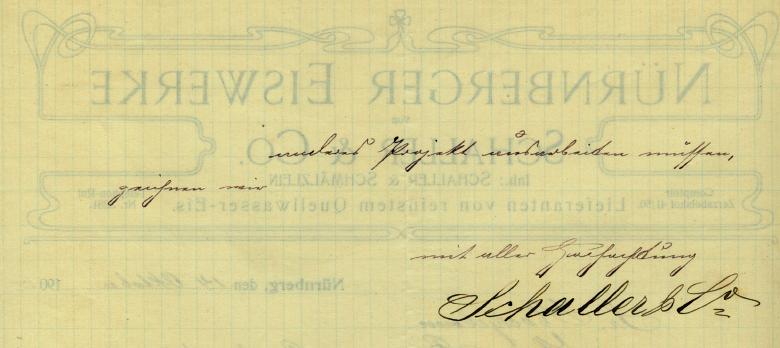 NÜRNBERGER EISWERKE
von
SCHALLER & CO.
Inh.: SCHALLER & SCHMÄLZLEIN
Lieferanten von reinstem Quellwasser-Eis.
Comptoir
Zerzabelshof 41/50.
Nürnberg, den 14 Oktober 190
anderes Projekt ausarbeiten müssen,
zeichnen wir
mit aller Hochachtung
Schaller & Co